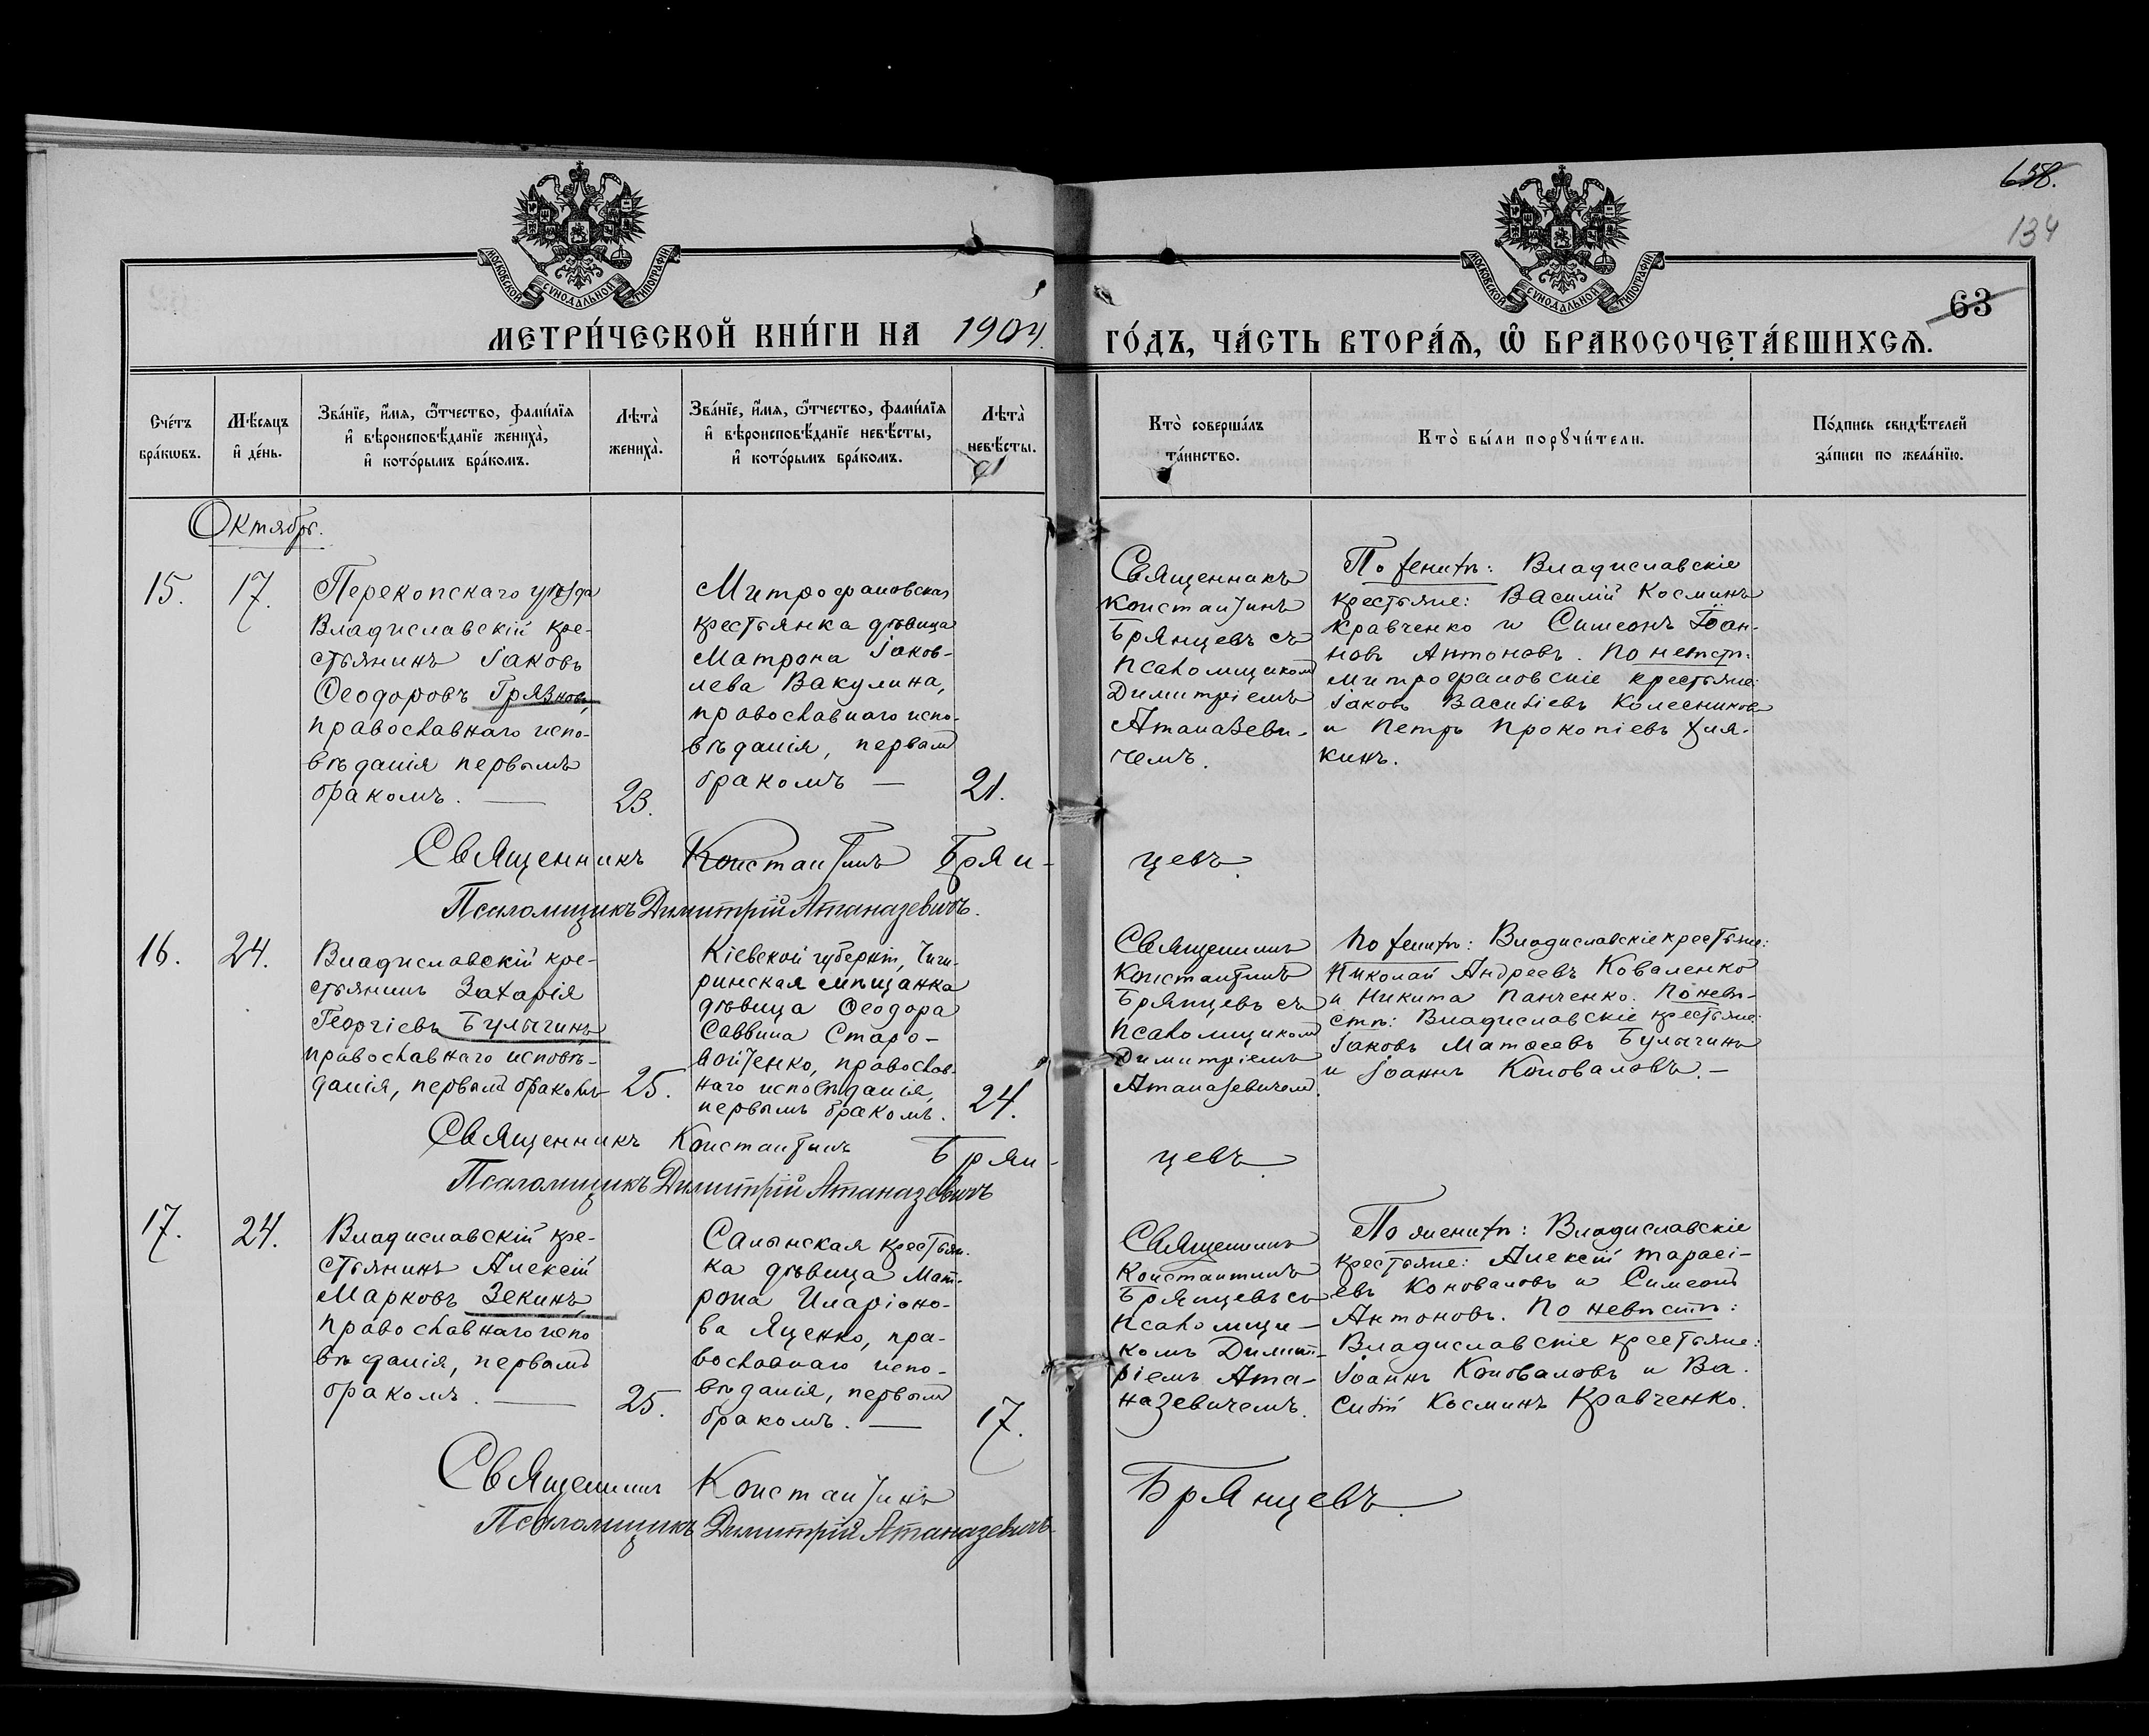 658.
134
МОСКОВСКОЙ СѴНОДАЛЬНОЙ ТИПОГРАФІИ
МОСКОВСКОЙ СѴНОДАЛЬНОЙ ТИПОГРАФІИ
63
МЕТРИ́ЧЕСКОЙ КНИ́ГИ НА 1904. ГО́ДЪ, ЧА́СТЬ ВТОРА́Ѧ, Ѡ҆ БРАКОСОЧЕТА́ВШИХСѦ.
Сче́тъ
бра́кѡвъ.
Мѣ́сѧцъ
и҆ де́нь.
Зва́нїе, и҆́мѧ, ѻ҆́тчество, фами́лїѧ
и҆ вѣроисповѣ́данїе жениха̀,
и҆ кото́рымъ бра́комъ.
Лѣта̀
жениха̀.
Зва́нїе, и҆́мѧ, ѻ҆́тчество, фами́лїѧ
и҆ вѣроисповѣ́данїе невѣ́сты,
и҆ кото́рымъ бра́комъ.
Лѣта̀
невѣ́сты.
Кто̀ соверша́лъ
та́инство.
Кто̀ бы́ли порꙋчи́тели.
По́дпись свидѣ́телей
за́писи по жела́нїю.
Октябрь.
15.
17.
Перекопскаго уѣзда
Владиславскій кре-
стьянинъ Іаковъ
Ѳеодоровъ Грязновъ,
православнаго испо-
вѣданія первымъ
бракомъ. —
23.
Митрофановская
крестьянка дѣвица
Матрона Іаков-
лева Вакулина,
православнаго испо-
вѣданія, первымъ
бракомъ —
21.
Священникъ
Константинъ
Брянцевъ съ
псаломщикомъ
Димитріемъ
Атаназеви-
чемъ.
По женихѣ: Владиславскіе
крестьяне: Василій Косминъ
Кравченко и Симеонъ Іоан-
новъ Антоновъ. По невѣст:
Митрофановскіе крестьяне:
Іаковъ Васильевъ Колесниковъ
и Петръ Прокопіевъ
кинъ.
Священникъ Константинъ Брян-цевъ.
Псаломщикъ Димитрій Атаназевичъ.
16.
24.
Владиславскій кре-
стьянинъ Захарія
Георгіевъ Булыгинъ
православнаго исповѣ-
данія, первымъ бракомъ
25.
Кіевской губерніи, Чиги-
ринская мѣщанка
дѣвица Ѳеодора
Саввина Старо-
войтенко, православ-
наго исповѣданія,
первымъ бракомъ.
24.
Священникъ
Константинъ
Брянцевъ съ
псаломщикомъ
Димитріемъ
Атаназевичемъ.
По женихѣ: Владиславскіе крестьяне:
Николай Андреевъ Коваленко
и Никита Панченко. По невѣ-
стѣ: Владиславскіе крестьяне:
Іаковъ Матѳеевъ Булыгинъ
и Іоаннъ Коноваловъ. —
Священникъ Константинъ Брян-цевъ.
Псаломщикъ Димитрій Атаназевичъ
17.
24.
Владиславскій кре-
стьянинъ Алексій
Марковъ Зекинъ,
православнаго испо
вѣданія, первымъ
бракомъ. —
25.
Салынская крестьян-
ка дѣвица Мат-
рона Иларіоно-
ва Яценко, пра-
вославнаго испо-
вѣданія, первымъ
бракомъ. —
17.
Священникъ
Константинъ
Брянцевъ съ
псаломщи-
комъ Димит-
ріемъ Ата-
назевичемъ.
По женихѣ: Владиславскіе
крестьяне: Алексій Тарасі-
евъ Коноваловъ и Симеонъ
Антоновъ. По невѣстѣ:
Владиславскіе крестьяне:
Іоаннъ Коноваловъ и Ва-
силій Косминъ Кравченко.
Священникъ Константинъ Брянцевъ.
Псаломщикъ Димитрій Атаназевичъ